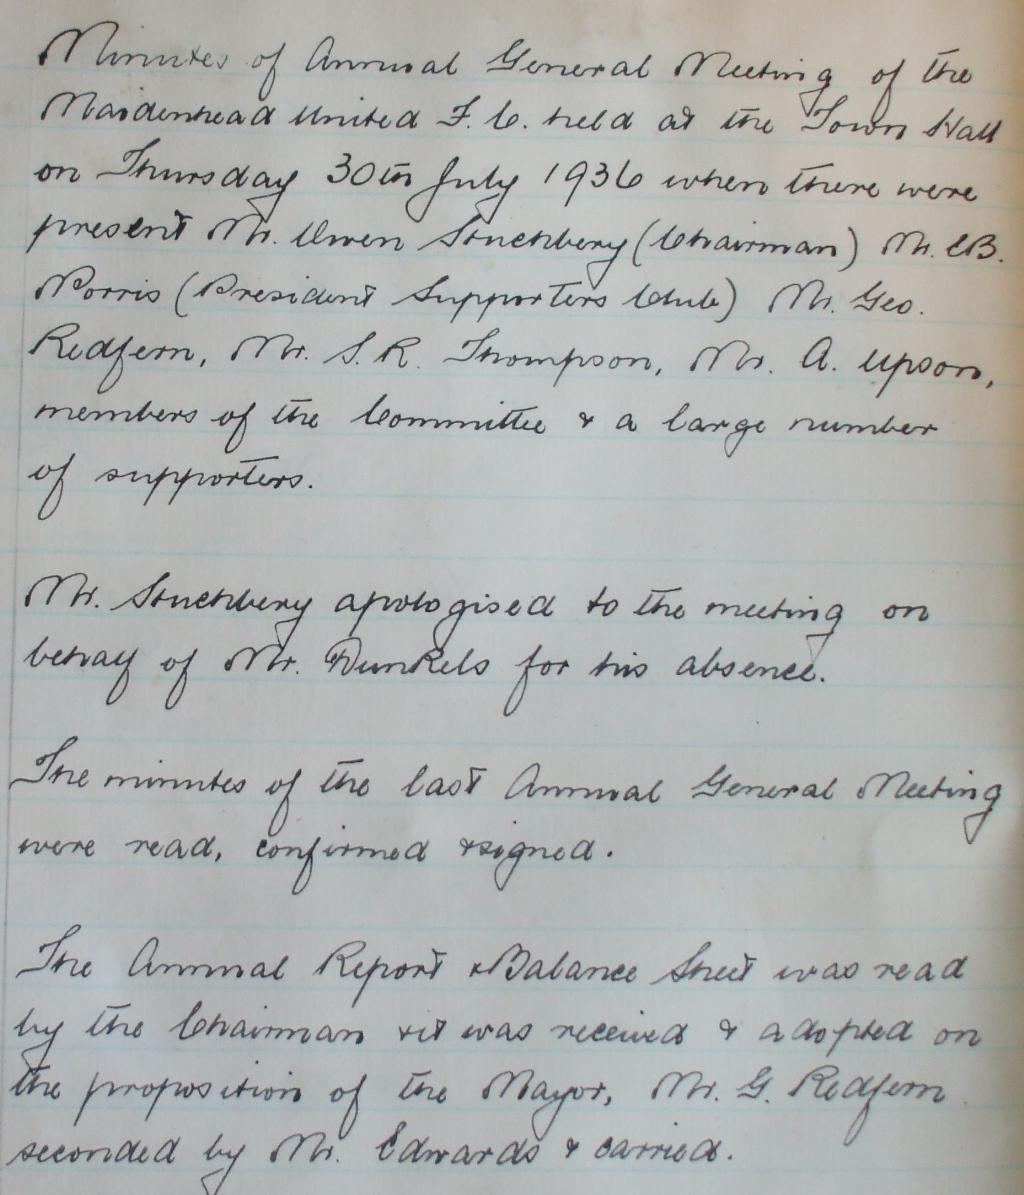 Minutes of Annual General Meeting of the
Maidenhead United F.C. held at the Town Hall
on Thursday 30th July 1936 when there were
present Mr. Owen Stuchbery (Chairman) Mr. C.B.
Norris (President Supporters Club) Mr. Geo.
Redfern, Mr. S. R. Thompson, Mr. A. Upson,
members of the Committee & a large number
of supporters.
Mr. Stuchbery apologised to the meeting on
behalf of Mr. Dunkels for his absence.
The minutes of the last Annual General Meeting
were read, confirmed & signed.
The Annual Report & Balance Sheet was read
by the Chairman & it was received & adopted on
the proposition of the Mayor, Mr. G. Redfern
seconded by Mr. Edwards & carried.